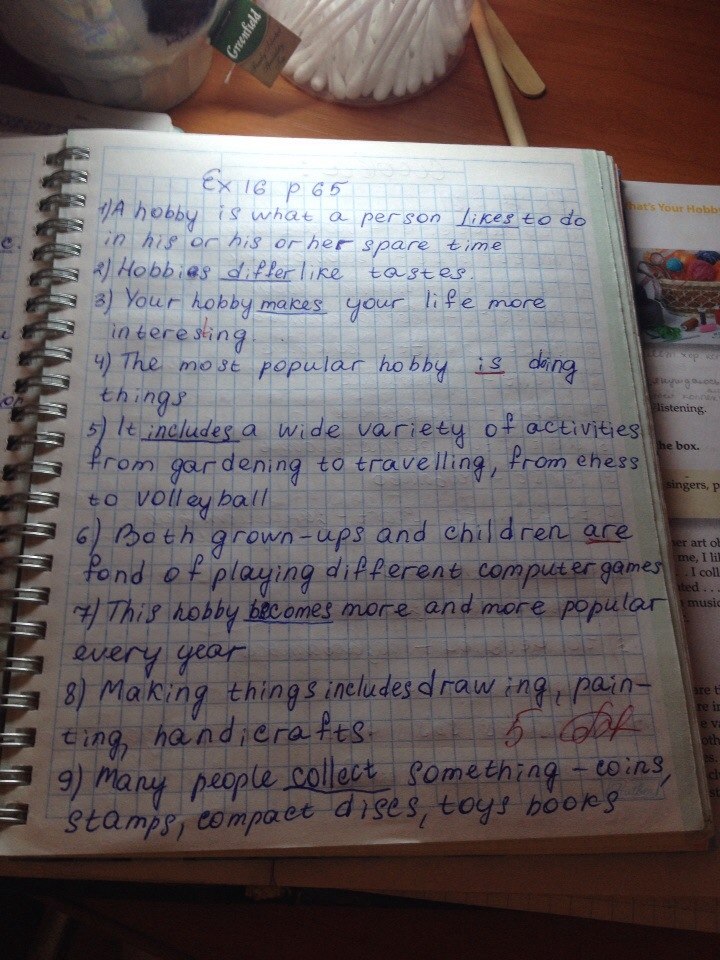 Greenfield
Ex 16 p 65
1) A hobby is what a person likes to do
in his or his or her spare time
2) Hobbies differ like tastes.
3) Your hobby makes your life more
interesting.
4) The most popular hobby is doing
things
5) It includes a wide variety of activities
from gardening to travelling, from chess
to volleyball
6) Both grown-ups and children are
fond of playing different computer games
7) This hobby becomes more and more popular
every year
8) Making things includes drawing, pain-
ting, handicrafts.
5
9) Many people collect something - coins,
stamps, compact discs, toys books
hat's Your Hobby
listening.
he box.
singers, p
her art ob
me, I lik
. . I colle
ted . . .
music